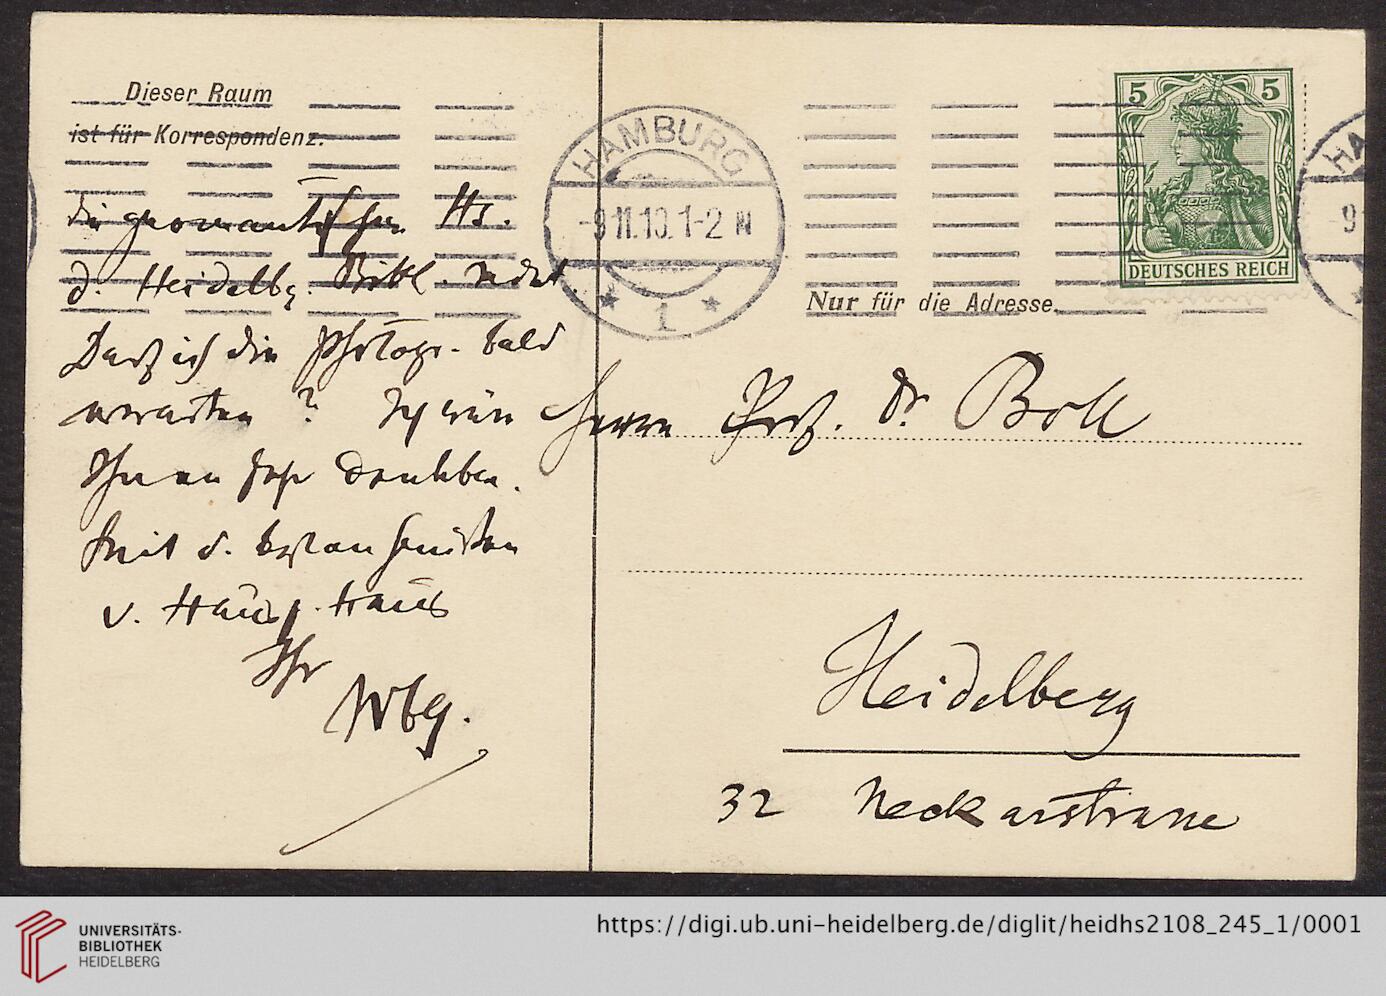 Dieser Raum
ist für Korrespondenz.
die geomantischen Hs.
d. Heidelbg. Bibl.
Darf ich die Photogr. bald
erwarten? Ich wäre
Ihnen sehr dankbar.
Mit d. besten Grüßen
v. Haus z. Haus
Ihr
Wbg.
HAMBURG
-9.11.10.1-2 N
1
5 5
DEUTSCHES REICH
HA
9
Nur für die Adresse.
Herrn Prof. Dr Boll
Heidelberg
32 Neckarstrasse
UNIVERSITÄTS-
BIBLIOTHEK
HEIDELBERG
https://digi.ub.uni-heidelberg.de/diglit/heidhs2108_245_1/0001